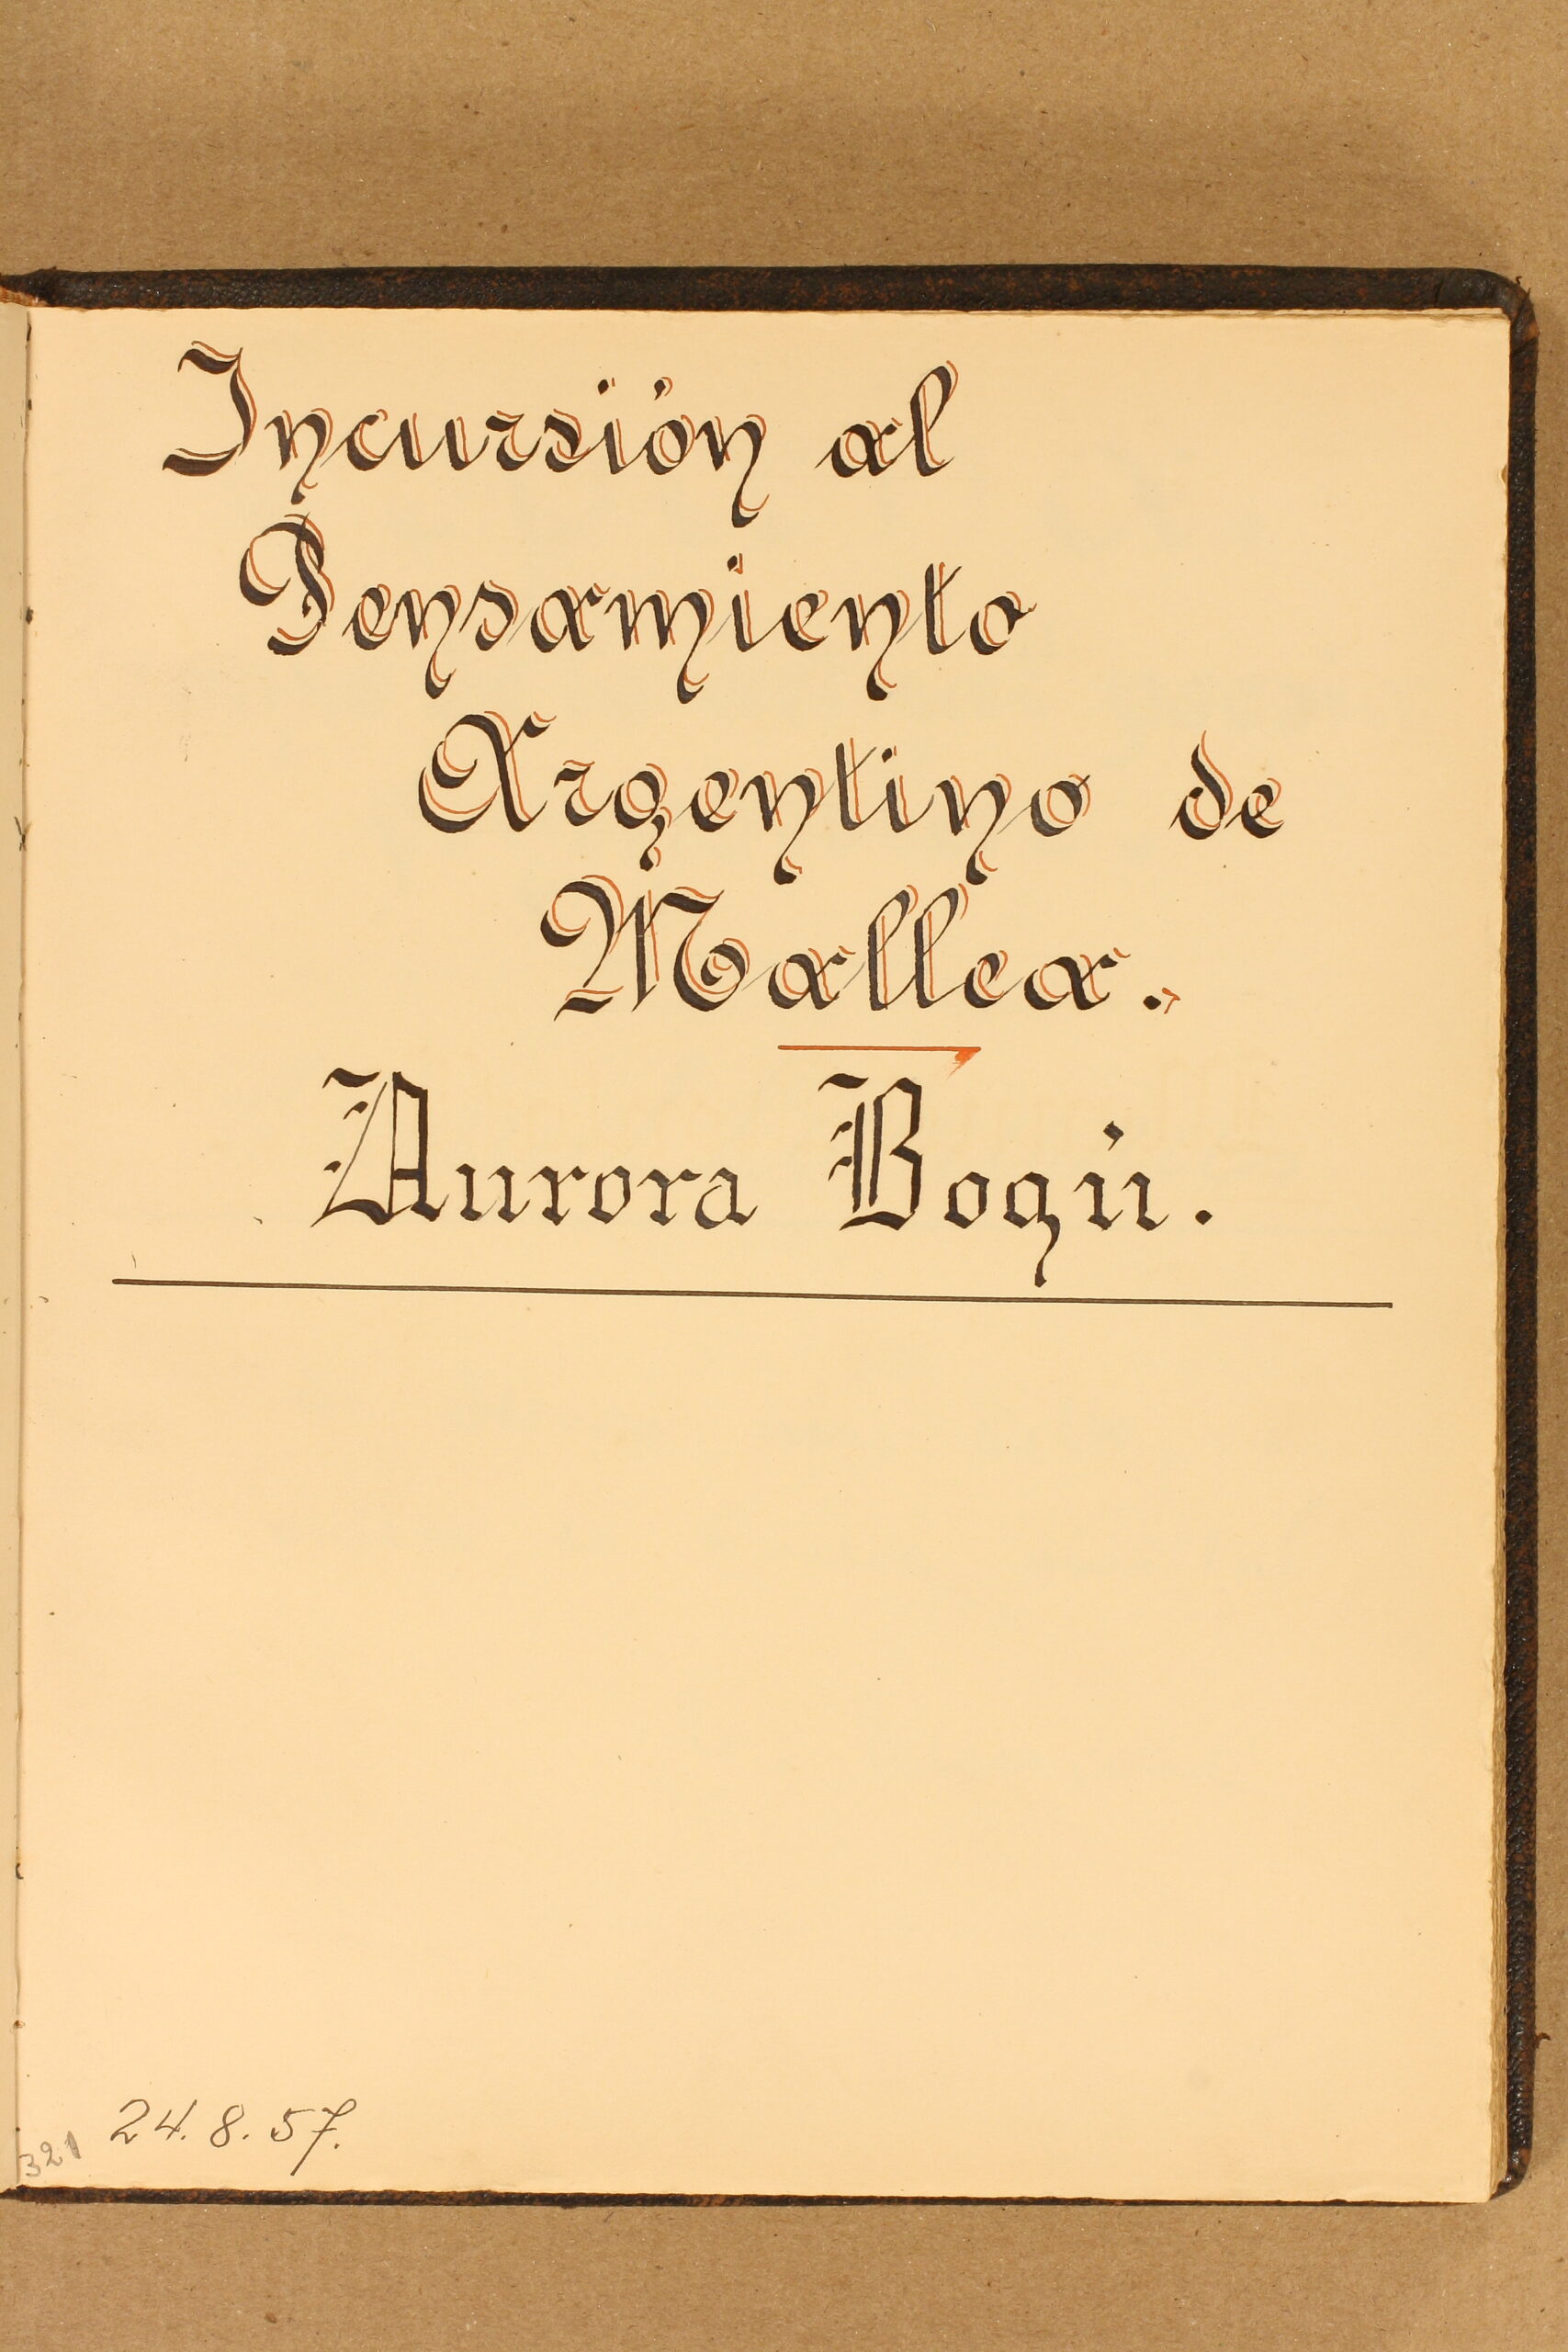 Incursión al
Pensamiento
Argentino de
Mallea."
Aurora Bogú.
24. 8. 57.
321